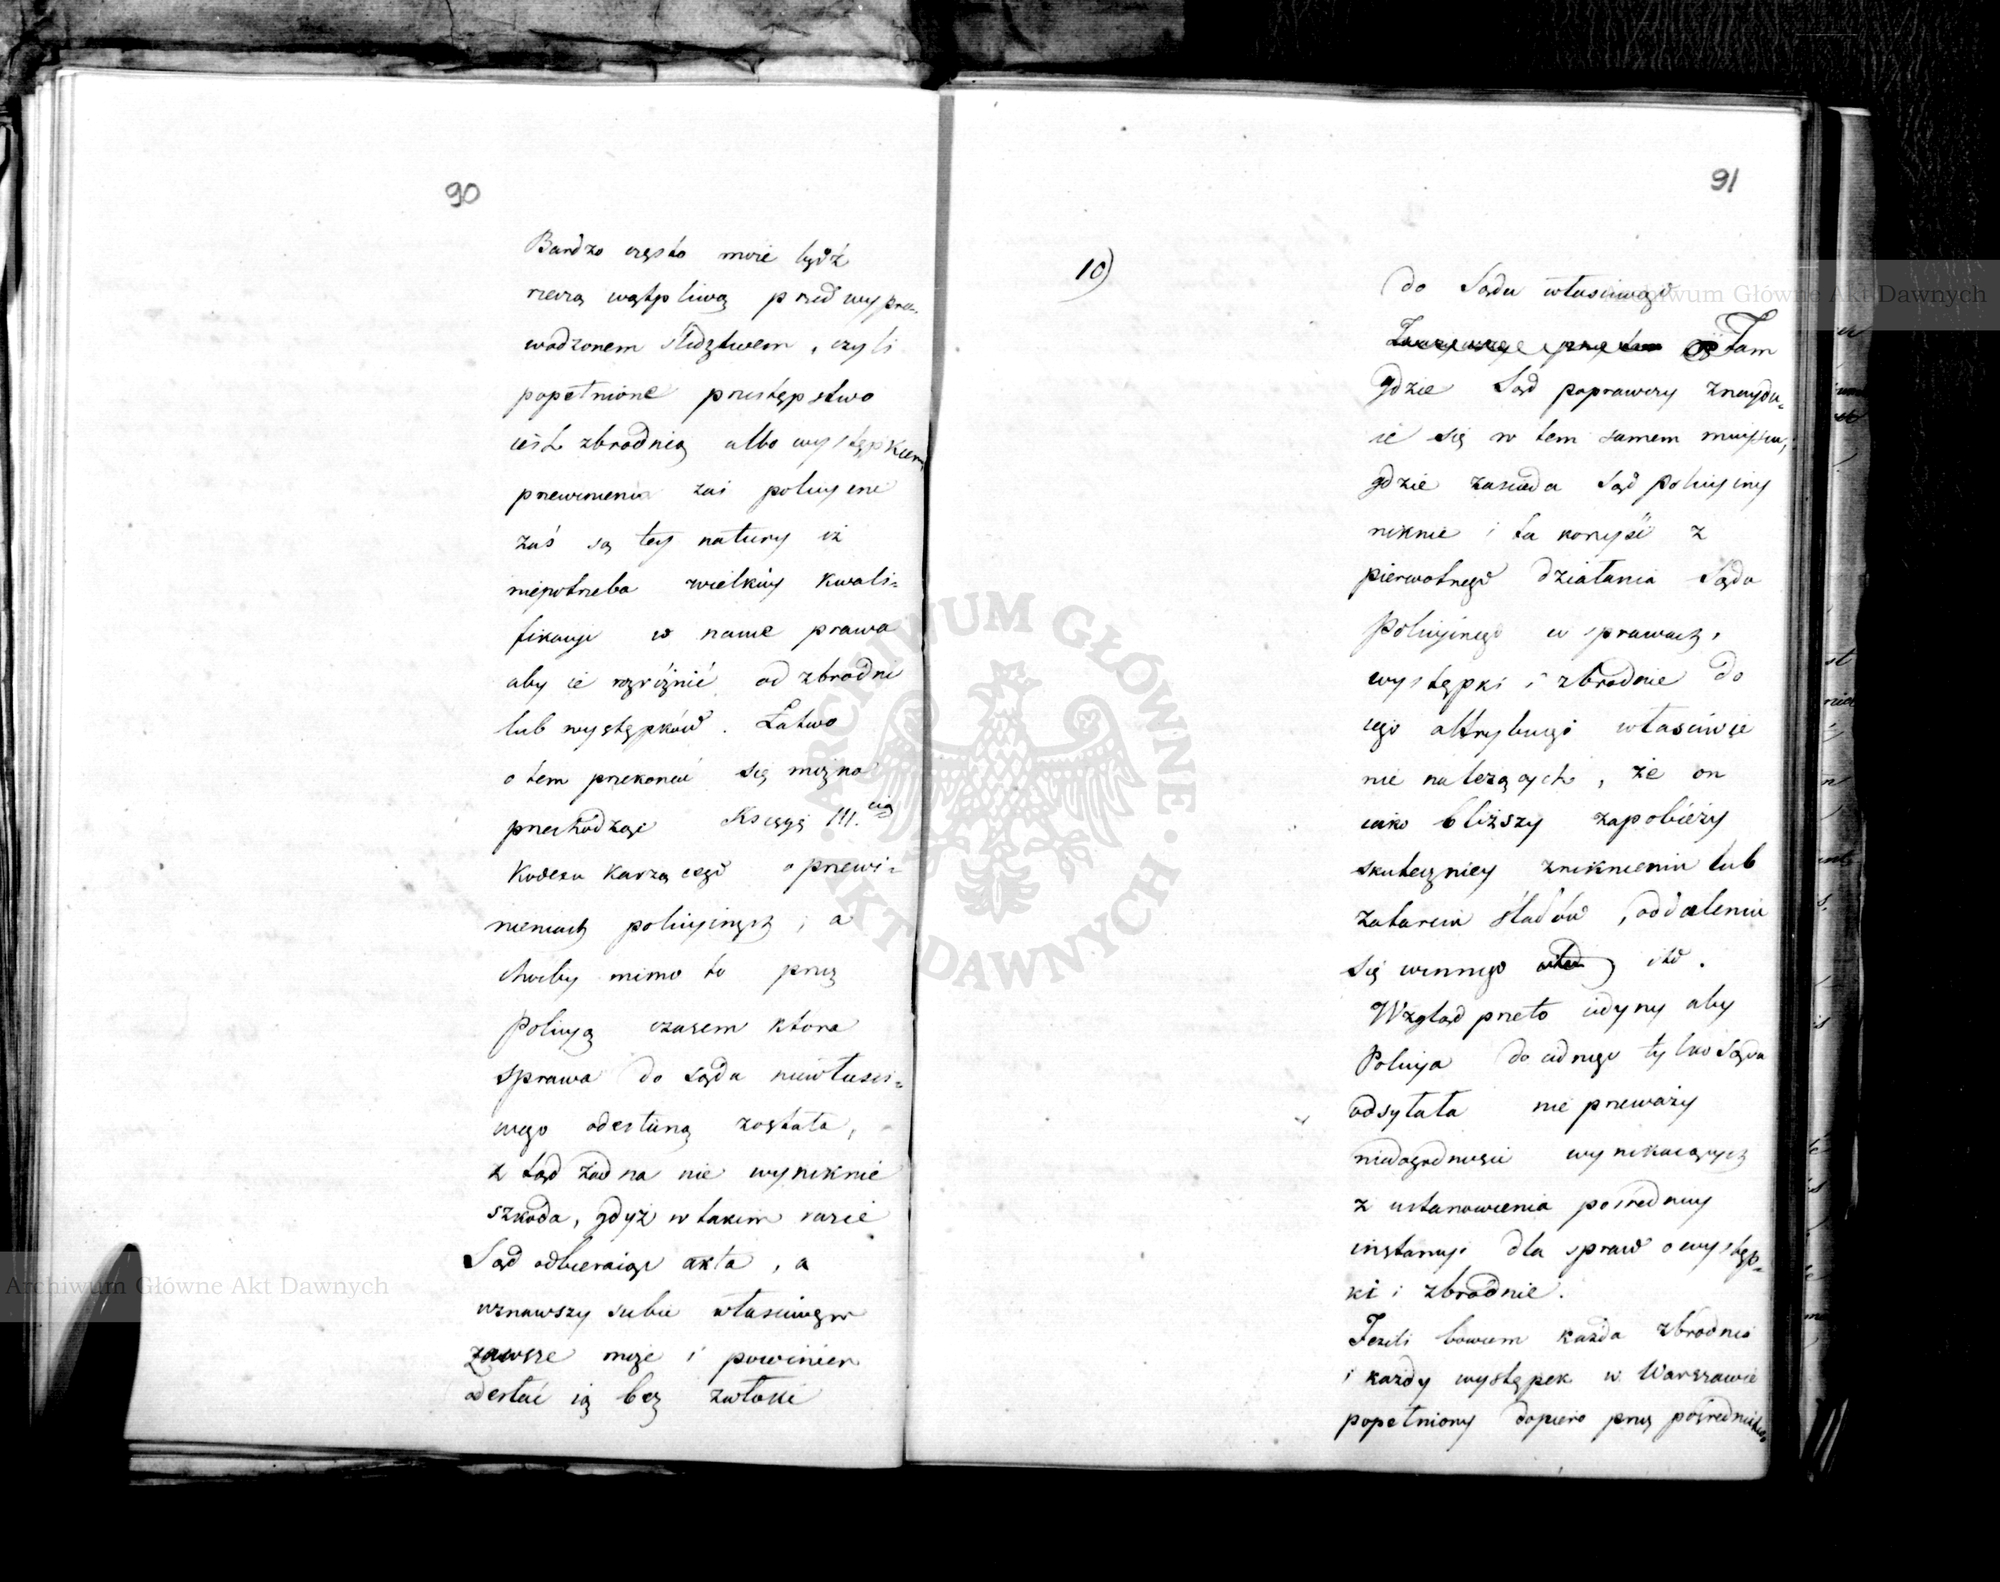 90
Bardzo często może bydź
rzeczą wątpliwą przed wypro-
wadzonem śledztwem, czyli
popełnione przestępstwo
iest zbrodnią albo występkiem,
przewinienia zaś policyine
zaś są tey natury iż
niepotrzeba wielkiey kwali=
fikacyi w nauce prawa
aby ie rozróżnić od zbrodni
lub występków. Łatwo
o tem przekonać się można
przechodząc Księgę III.cią
Kodexu Karzącego o przewi=
nieniach policyinych; a
choćby mimo to przez
Policyą czasem która
sprawa do sądu niewłaści=
wego odesłaną została,
z tąd żadna nie wyniknie
szkoda, gdyż w takim razie
Sąd odbieraiąc akta, a
uznawszy siebie
zawsze może i powinien
odesłać ią bez zwłoki
91
10)
do Sądu właściwego
Tam
gdzie Sąd poprawczy znaydu=
ie się w tem samem mieyscu,
gdzie zasiada Sąd policyiny
niknie i ta korzyść z
pierwotnego działania Sądu
Policyinego w sprawach,
występki i zbrodnie do
iego attrybucyi właściwie
nie należących, że on
iako bliższy zapobieży
skuteczniey zniknieniu lub
zatarciu śladów, oddaleniu
się winnego itd.
Wzgląd przeto iedyny aby
Policya do iednego tylko Sądu
odsyłała nie przeważy
niedogodności wynikaiących
z ustanowienia pośredniey
instancyi dla spraw o występ=
ki i zbrodnie.
Jeżeli bowiem każda zbrodnia
i każdy występek w Warszawie
popełniony dopiero przez pośrednictwo
Archiwum Główne Akt Dawnych
Archiwum Główne Akt Dawnych
ARCHIWUM GŁÓWNE · AKT DAWNYCH ·